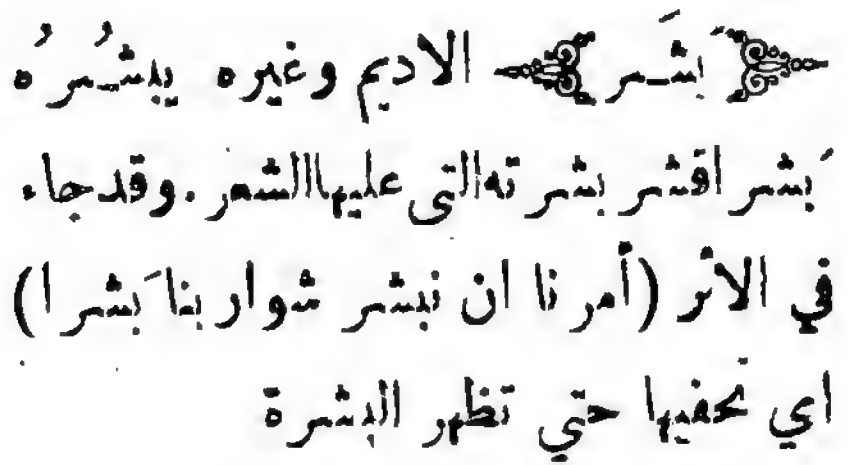 ﴿ بَشَر ﴾ الاديم وغيره يبشُرُه
بَشرا قشر بشرته التى عليها الشعر . وقد جاء
في الاثر (أمرنا ان نبشر شواربنا بَشرا)
اي نحفيها حتي تظهر البشرة